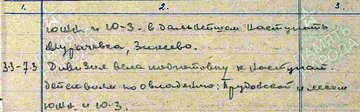 1. 2. 3.
южн. и ю-з. в дальнейшем наступать
Журачевка, Зинсево.
3.3-7.3 Дивизия вела подготовку к наступат.
действиям по овладению: Трудовской и лесом
южн. и ю-з.